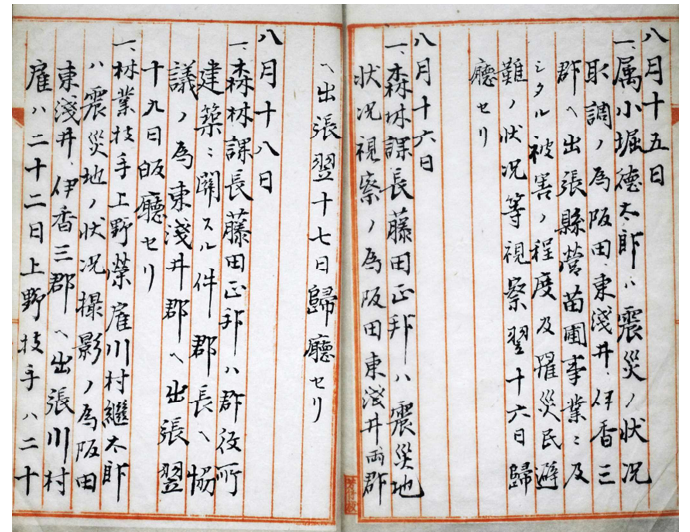 八月十五日
一、属小堀徳太郎ハ震災ノ状況
取調ノ為阪田、東淺井、伊香三
郡ヘ出張縣営苗圃事業ニ及
シタル被害ノ程度及罹災民避
難ノ状況等視察翌十六日歸
廳セリ
八月十六日
一、森林課長藤田正邦ハ震災地
状况視察ノ為阪田東淺井両郡
ヘ出張翌十七日歸廳セリ
八月十八日
一、森林課長藤田正邦ハ郡役所
建築ニ関スル件郡長ヘ協
議ノ為東淺井郡ヘ出張翌
十九日皈廳セリ
一、林業技手上野榮雇川村繼太郎
ハ震災地ノ状况撮影ノ為阪田
東淺井、伊香三郡ヘ出張川村
雇ハ二十二日上野技手ハ二十